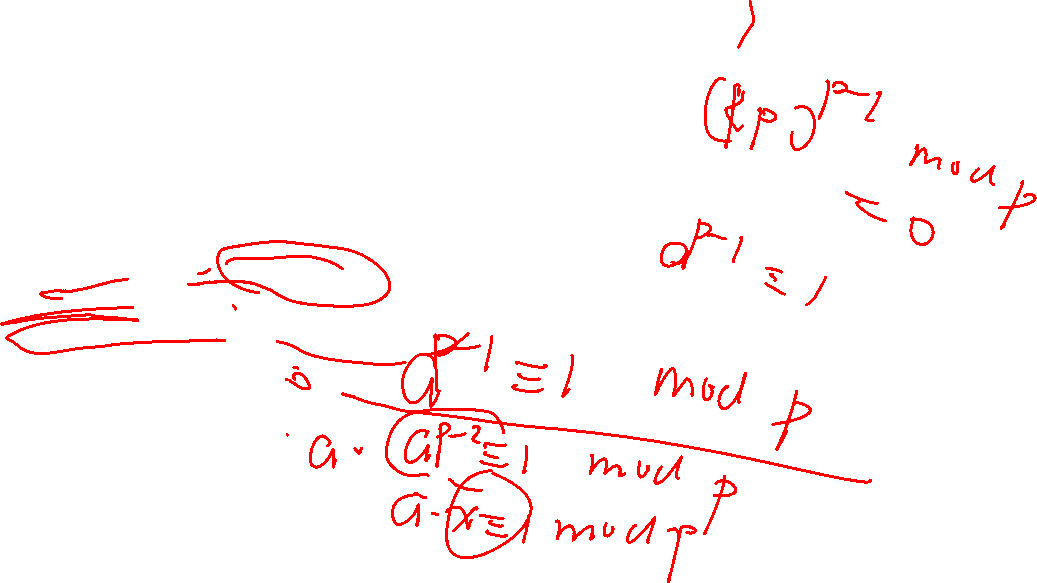 (kp)^{p-1} mod p
≡ 0
a^{p-1} ≡ 1
a^{p-1} ≡ 1 mod p
a · a^{p-2} ≡ 1 mod p
a · x ≡ 1 mod p